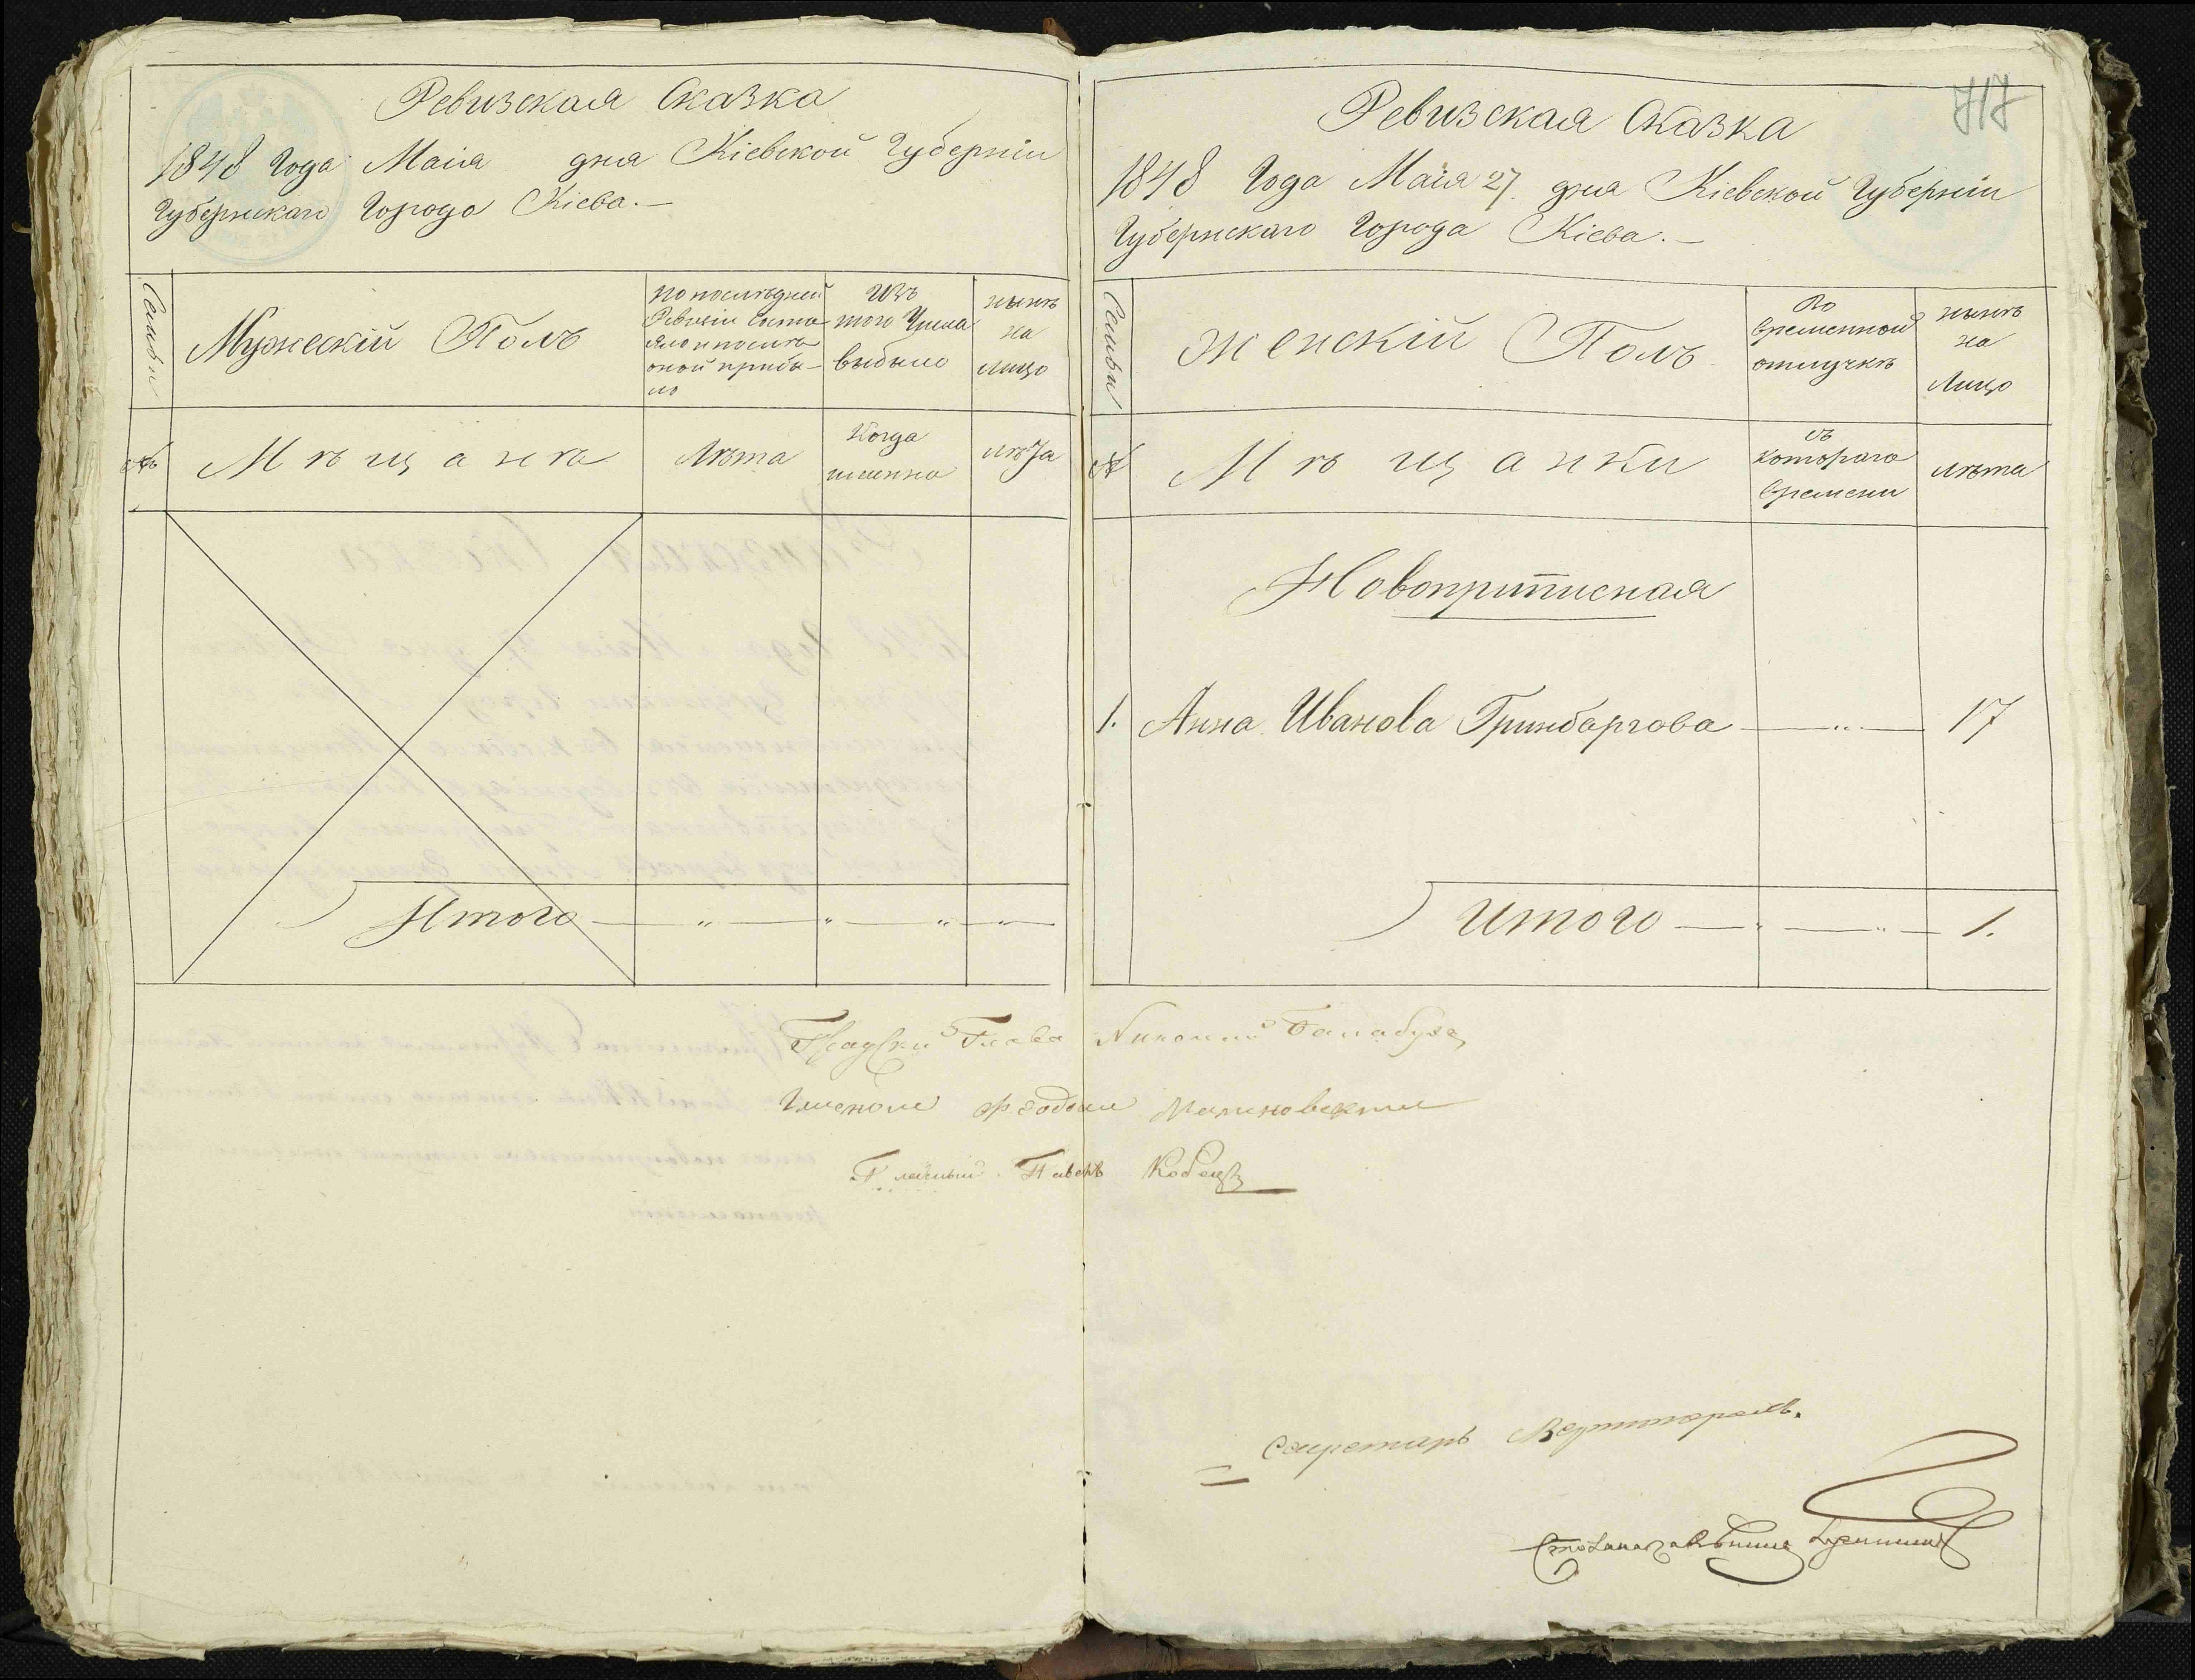 Ревизская Сказка
1848 Года Маія дня Кіевской Губерніи
Губернскаго Города Кіева.—
Семьи
Мужескій Полъ
по последней
Ревизіи состо-
яло и после
оной прибы-
ло
Изъ
того Числа
выбыло
нынѣ
на
лицо
№
Мѣщанѣ
Лѣта
Когда
именно
лѣта
Итого — „ — „ — „ — „ —
717
Ревизская Сказка
1848 Года Маія 27. дня Кіевской Губерніи
Губернскаго Города Кіева.—
Семьи
Женскій Полъ
Во
временной
отлучкѣ
нынѣ
на
Лицо
№
Мѣщанки
съ
котораго
времени
лѣта
Новоприписная
1. Анна Иванова Гринбаргова — „ — 17
Итого — „ — „ — 1.
Градскій Глава Балабуха
Гласный Павелъ Кобецъ
Секретарь